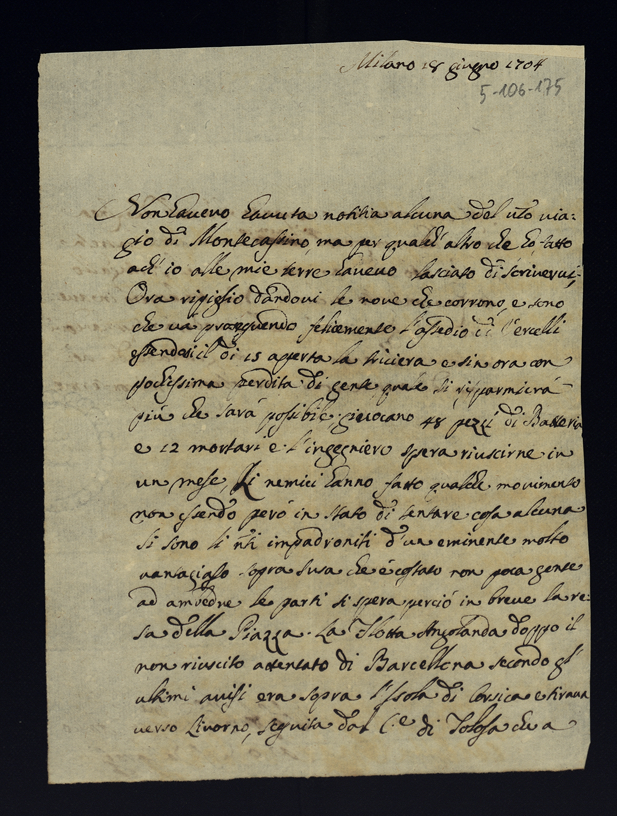 Milano 18 giugno 1704
5-106-175
Non havevo havuta notitia alcuna del vro via=
gio di Montecassino, ma per qualch' altro che hò fatto
ach' io alle mie terre havevo lasciato di scrivervi,
Ora ripiglio dandovi le nove che corrono, e sono
che va proseguendo felicemente l'assedio di Vercelli
essendosi il dì 15 aperta la triciera e sin ora con
pochissima perdita di gente quale si risparmierà
più che sarà possibile giuocano 48 pezzi di Batteria
e 12 mortari e l'ingegniero spera riuscirne in
un mese, Li nemici hanno fatto qualche movimento
non essendo però in stato di tentare cosa alcuna
si sono li nti impadroniti d'un eminente molto
vantagioso sopra Susa che è costato non poca gente
ad ambedue le parti si spera perciò in breve la re=
sa della Piazza. La flotta Angolanda doppo il
non riuscito attentato di Barcellona secondo gl'
ultimi avisi era sopra l'Isola di Corsica e tirava
verso Livorno, seguita dal C.e di Tolosa che a